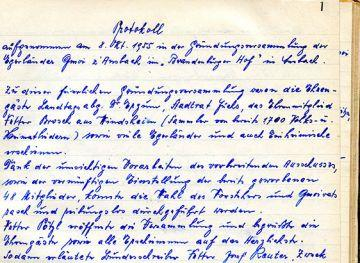 1
Protokoll
aufgenommen am 8. Okt. 1955 in der Gründungsversammlung der
Egerländer Gmoi z'Ansbach im "Brandenburger Hof" in Ansbach.
Zu dieser feierlichen Gründungsversammlung waren die Ehren-
gäste Landtagsabg. Dr. Stadtrat das Ehrenmitglied
Vetter aus Windsheim (Sammler von bereits 1700 Volks- u.
Heimatliedern) sowie viele Egerländer und auch Einheimische
erschienen.
Dank der umsichtigen Vorarbeiten des vorbereitenden Ausschusses,
sowie der vernünftigen Einstellung der bereits geworbenen
40 Mitglieder, konnte die Wahl des Vorstehers und Gmoirats
rasch und reibungslos durchgeführt werden.
Vetter Pötzl eröffnete die Versammlung und begrüßte die
Ehrengäste sowie alle Erschienenen auf das Herzlichste.
Sodann erläuterte Vetter Josef Zweck